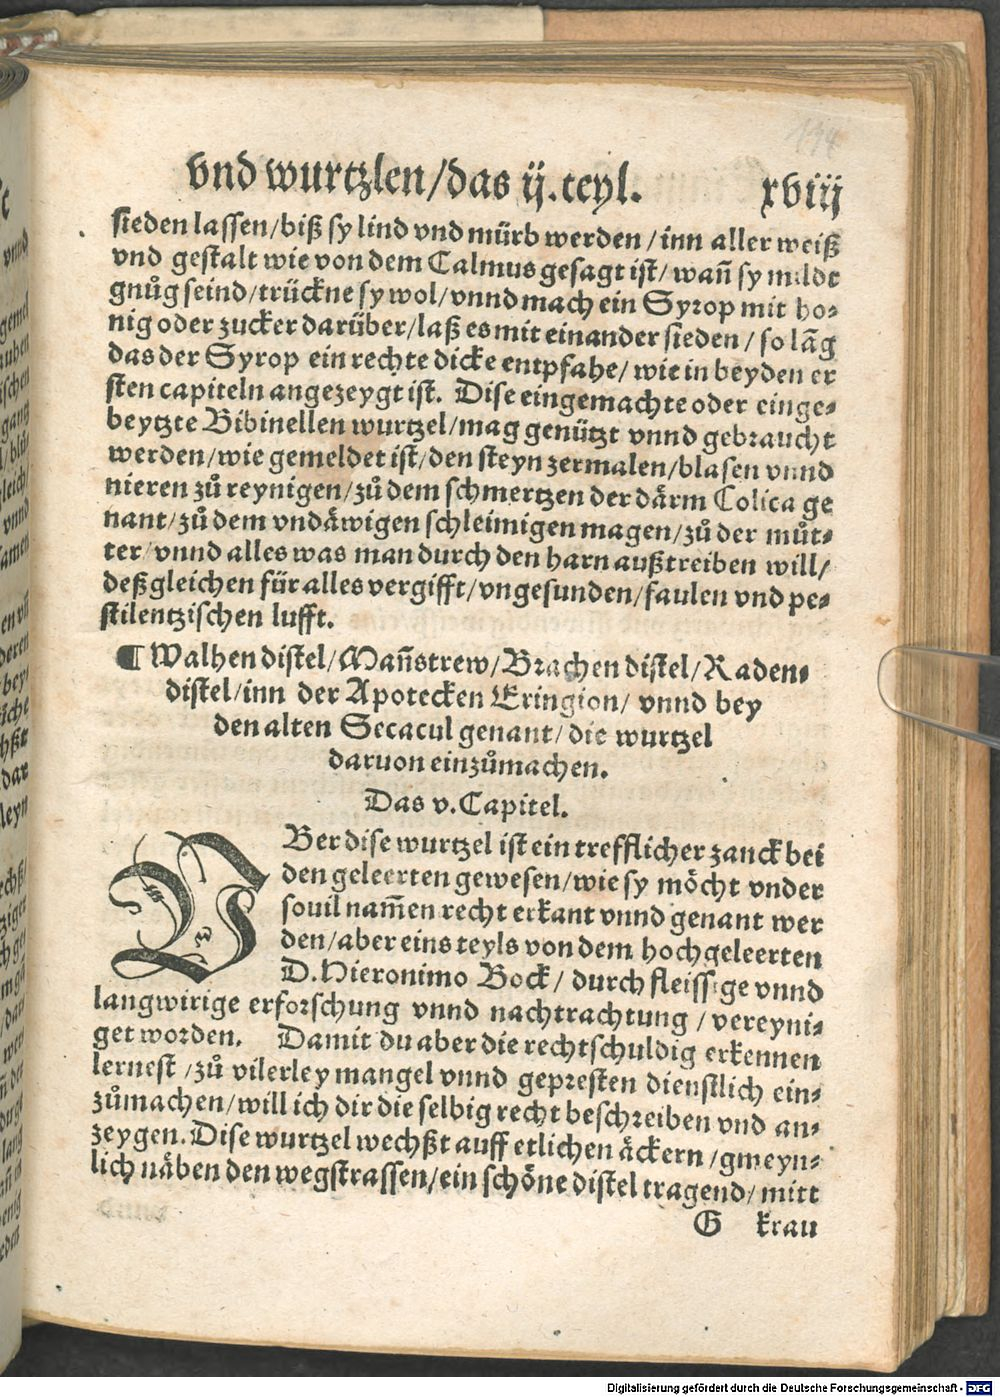 vnd wurtzlen/das ij.teyl. xviij
sieden lassen/biß sy lind vnd mürb werden/inn aller weiß
vnd gestalt wie von dem Calmus gesagt ist/wañ sy milde
gnůg seind/trückne sy wol/vnnd mach ein Syrop mit ho-
nig oder zucker darüber/laß es mit einander sieden/so lãg
das der Syrop ein rechte dicke entpfahe/wie in beyden er
sten capiteln angezeygt ist. Dise eingemachte oder einge-
beytzte Bibinellen wurtzel/mag genützt vnnd gebraucht
werden/wie gemeldet ist/den steyn zermalen/blasen vnnd
nieren zů reynigen/zů dem schmertzen der därm Colica ge
nant/zů dem vndäwigen schleimigen magen/zů der můt-
ter/vnnd alles was man durch den harn außtreiben will/
deßgleichen für alles vergifft/vngesunden/faulen vnd pe-
stilentzischen lufft.
¶ Walhen distel/Mañstrew/Brachen distel/Raden-
distel/inn der Apotecken Eringion/vnnd bey
den alten Secacul genant/die wurtzel
daruon einzůmachen.
Das v. Capitel.
VBer dise wurtzel ist ein trefflicher zanck bei
den geleerten gewesen/wie sy möcht vnder
souil nam̃en recht erkant vnnd genant wer
den/aber eins teyls von dem hochgeleerten
D. Hieronimo Bock/durch fleissige vnnd
langwirige erforschung vnnd nachtrachtung/vereyni-
get worden. Damit du aber die rechtschuldig erkennen
lernest/zů vilerley mangel vnnd gepresten dienstlich ein-
zůmachen/will ich dir die selbig recht beschreiben vnd an-
zeygen. Dise wurtzel wechßt auff etlichen äckern/gmeyn-
lich näben den wegstrassen/ein schöne distel tragend/mitt
G krau
Digitalisierung gefördert durch die Deutsche Forschungsgemeinschaft - DFG